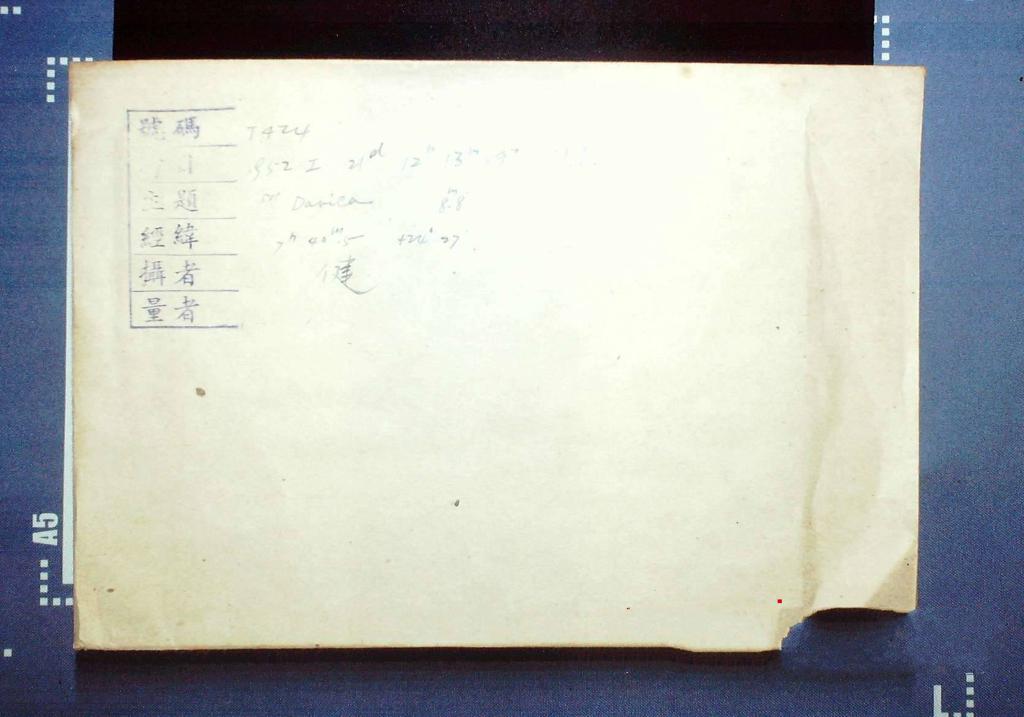 號碼 T424
952 I 21ᵈ 12ʰ 13ᵐ
主題 Davica 8ᵐ.8
經緯 7ʰ 40ᵐ.5 +24° 27'
攝者 健
量者
A5